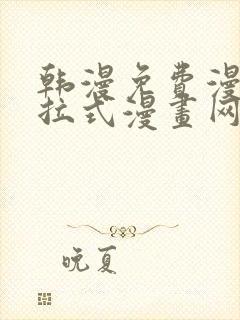 韩漫免费漫
拉式漫畫网
晚夏